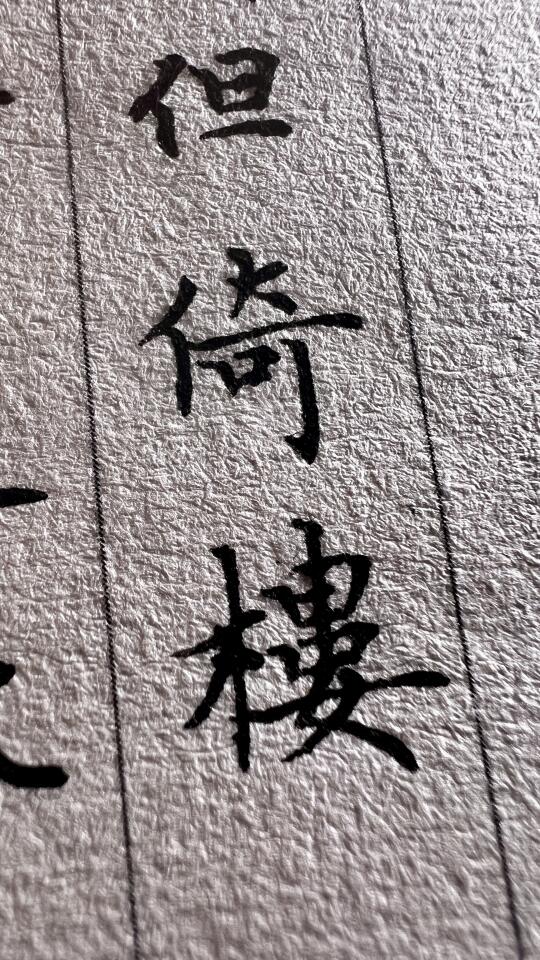 但倚樓